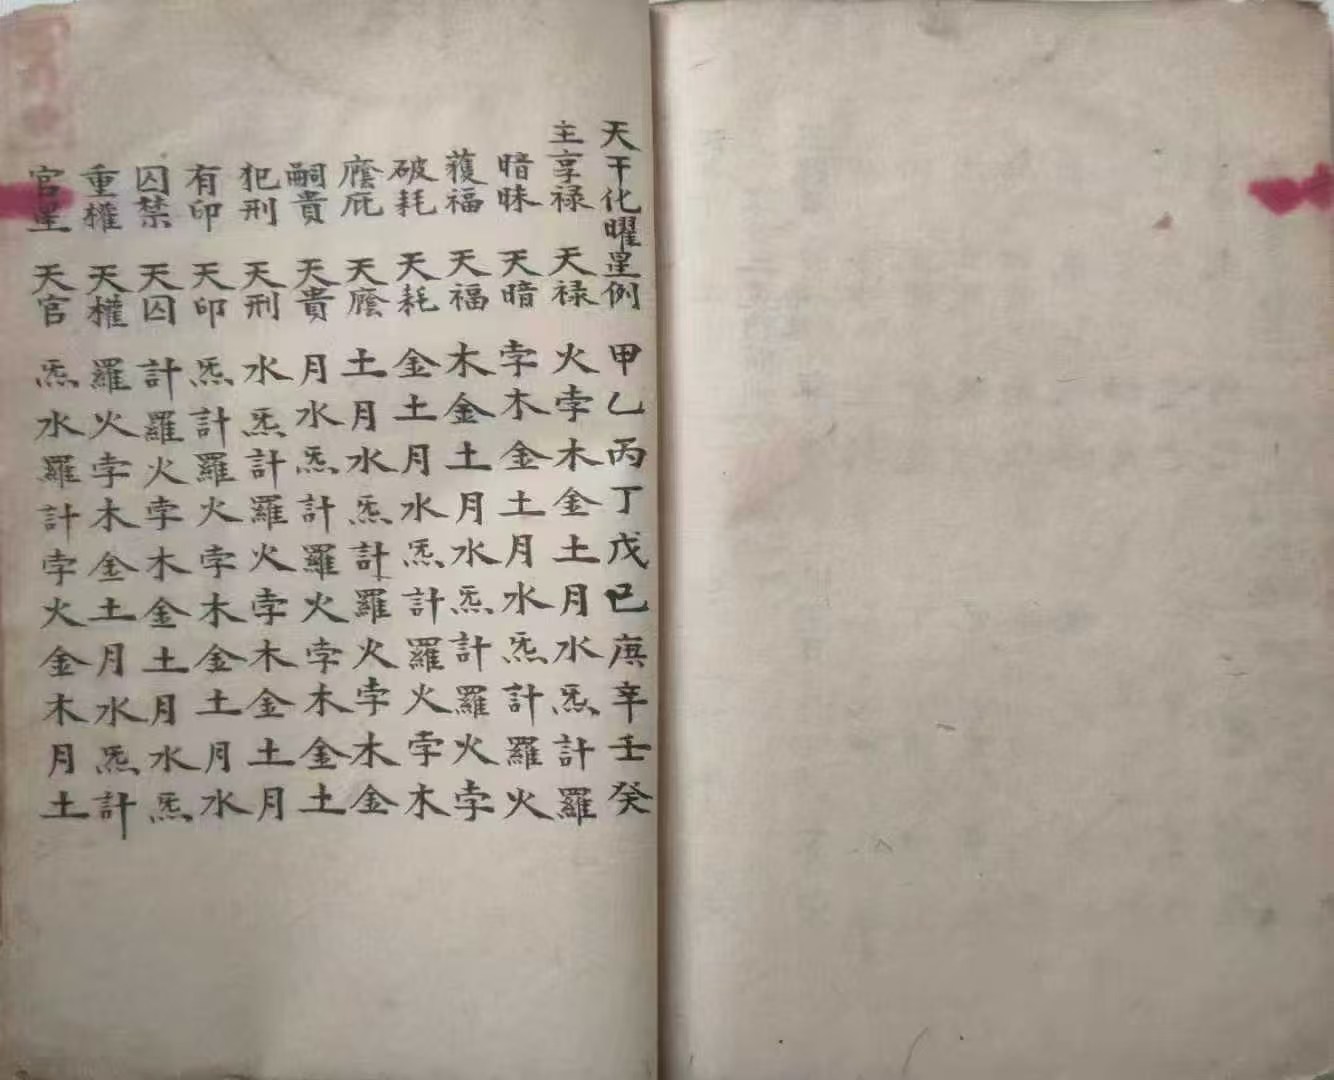 天干化曜星例甲乙丙丁戊己庚辛壬癸
主享禄天禄火孛木金土月水炁計羅
暗昧天暗孛木金土月水炁計羅火
獲福天福木金土月水炁計羅火孛
破耗天耗金土月水炁計羅火孛木
廕庇天廕土月水炁計羅火孛木金
嗣貴天貴月水炁計羅火孛木金土
犯刑天刑水炁計羅火孛木金土月
有印天印炁計羅火孛木金土月水
囚禁天囚計羅火孛木金土月水炁
重權天權羅火孛木金土月水炁計
官星天官炁水羅計孛火金木月土